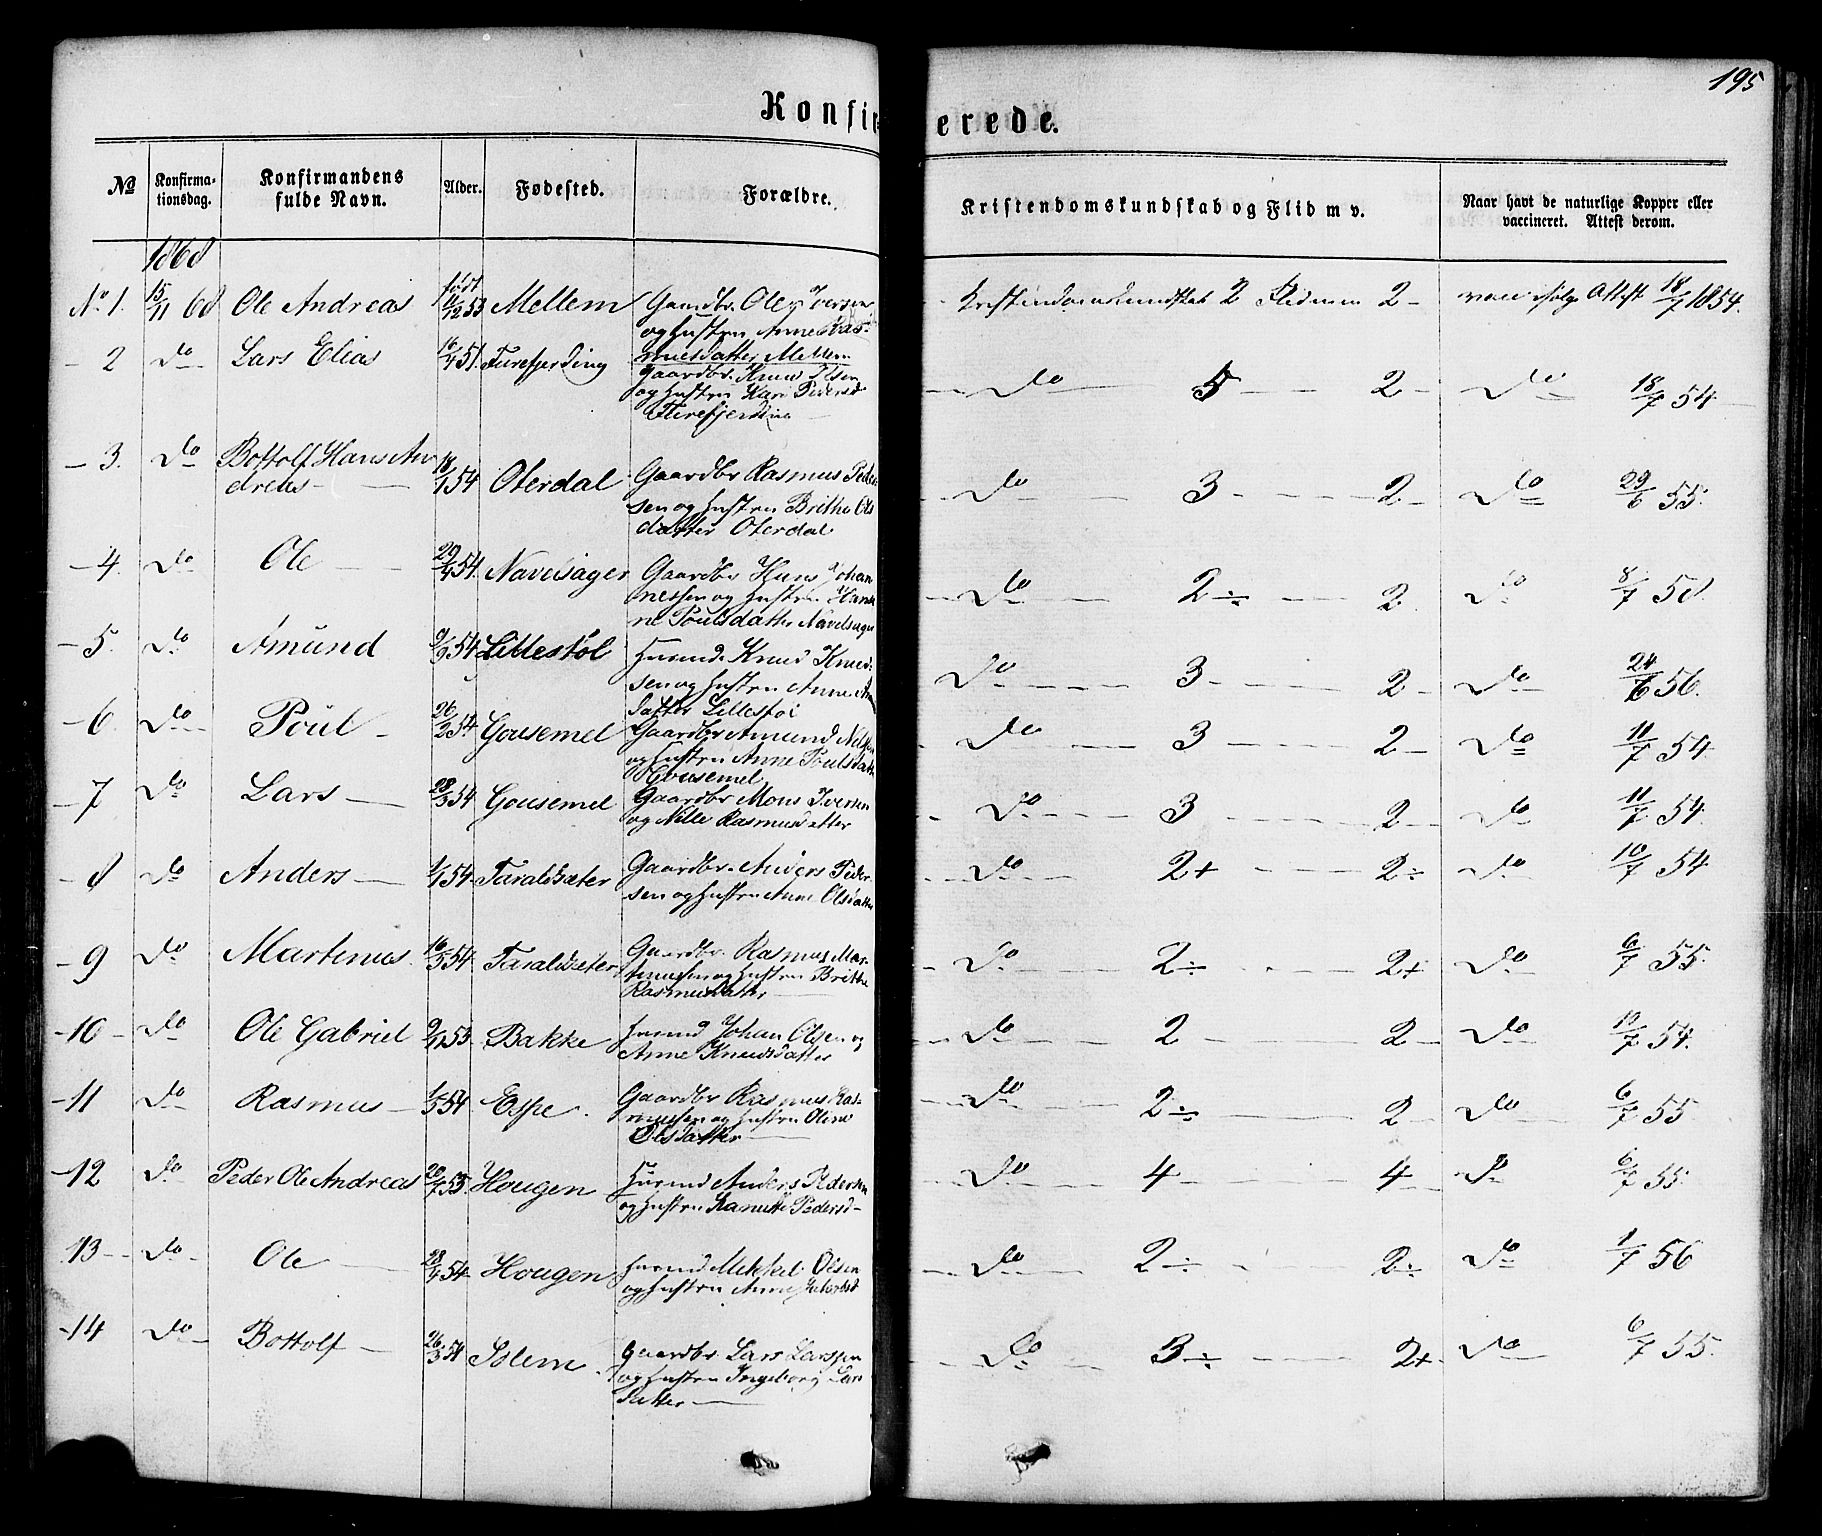 195
Konfir-
erede.
No
Konfirma-
tionsdag.
Konfirmandens
fulde Navn.
Alder.
Fødested.
Forældre.
Kristendomskundskab og Flid m v.
Naar havt de naturlige Kopper eller
vaccineret. Attest derom.
1868
No 1. 15/11 68 Ole Andreas født 11/12 53 Mellem Gaardbr. Ole Iversen Kristendomskundskab 2 Flid 2 - vacc ifølge Attest 18/7 1854.
og Hustru Anne Ras-
musdatter Mellem
- 2 Do Lars Elias 16/4 51. Furefjerding Gaardbr. Knud Olsen Do 5 2 - Do 18/7 54
og Hustru Kari Pedersd
Furefjerding
- 3. Do Bottolf Hans An 18/1 54 Oterdal Gaardbr Rasmus Peder Do 3 - 2 - Do 29/6 55.
dreas -
sen og Hustru Brithe Ols
datter Oterdal
- 4. Do Ole 29/4 54. Navelsager Gaardbr Hans Johan Do 2 ÷ 2 Do 8/7 58.
nessen og Hustru Han
ne Poulsdatter Navelsager
- 5. Do Amund 9/9 54 Lillestøl Huusmd. Knud Knud- Do 3 - 2 - Do 24/6 56.
sen og Hustru Anne
datter Lillestøl
- 6. Do Poul - 26/2 54 Gousemel Gaardbr Amund Nilsen Do 3 - 2 - Do 11/7 54.
og Hustru Anne Poulsdatter
Gousemel
- 7 Do Lars 28/3 54 Gousemel Gaardbr Mons Iversen Do 3 2 - Do 11/7 54.
og Nille Rasmusdatter
- 8 Do Anders 1/1 54 Taraldsæter Gaardbr. Anders Peder Do 2 + 2 ÷ Do 10/7 54
sen og Hustru Anne Olsdatter
- 9 Do Martinus. 16/5 54 Taraldsæter Gaardbr. Rasmus Mar- Do 2 ÷ 2 + Do 6/7 55.
tinussen og Hustru Brithe
Rasmusdatter
- 10 - Do Ole Gabriel 9/11 53 Bakke Huusmd Johan Olsen og Do 2 2 - Do 10/7 54.
Anne Knudsdatter
- 11 Do Rasmus - 1/5 54 Espe. Gaardbr Rasmus Ras- Do 2 ÷ 2 - Do 6/7 55
mussen og Hustru Oline
Olsdatter
- 12 Do Peder Ole Andreas 20/7 53 Hougen Huusmd Anders Pedersen Do 4 4 - Do 6/7 55.
og Hustru Ranutte Pedersd -
13 - Do Ole 28/4 54. Hougen Huusmd Mikkel Olsen Do 2 ÷ 2 ÷ Do 1/7 56
og Hustru Anne Jakobsd
- 14 Do Bottolf 26/3 54 Solem Gaardbr Lars Larssen Do 3 ÷ 2 + Do 6/7 55.
og Hustru Ingeborg Lars
datter